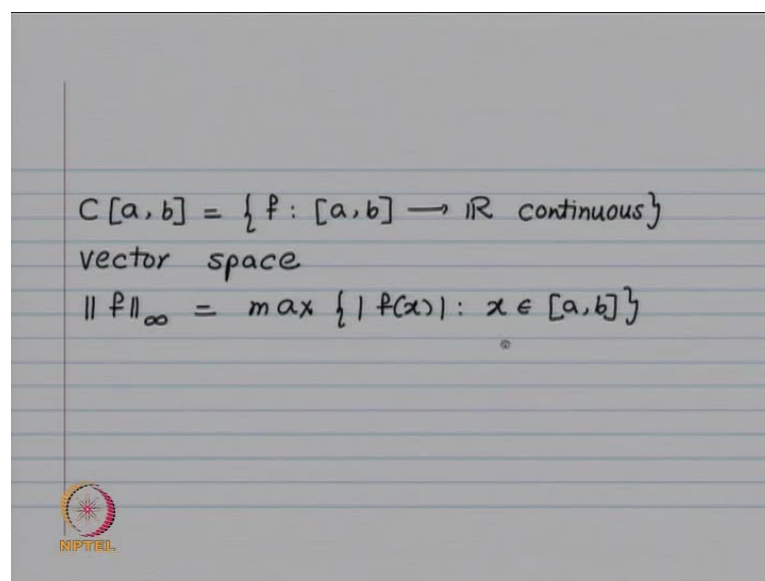 C[a,b] = { f : [a,b] → ℝ continuous}
vector space
‖f‖∞ = max {|f(x)| : x ∈ [a,b]}
NPTEL